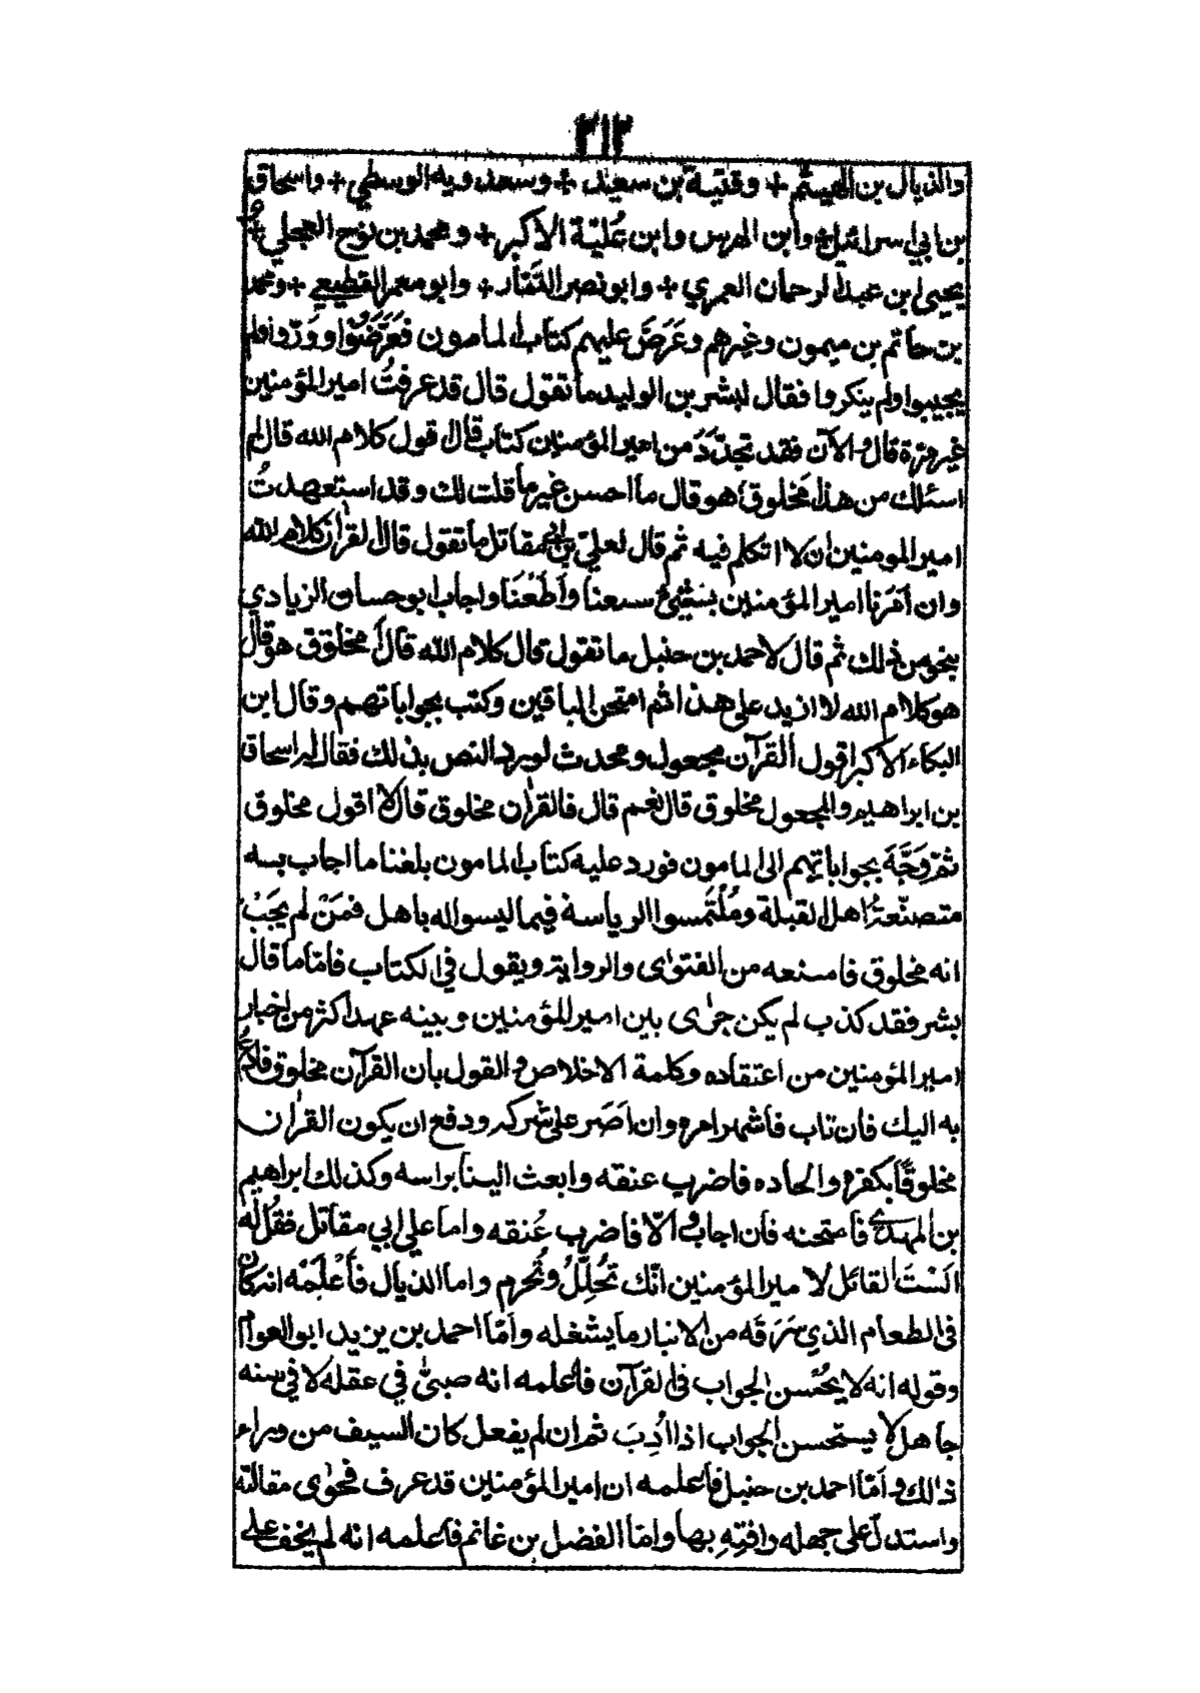 ٣١٢
والذيال بن الهيثم + وقتيبة بن سعيد + وسعدويه الوسطي + واسحاق
بن ابي اسرائيل + وابن الهرس وابن عُليّة الاكبر + ومحمد بن نوح العجلي +
يحيى بن عبد الرحمان العمري + وابو نصر التمّار + وابو معمر القطيعي + ومحمد
بن حاتم بن ميمون وغيرهم وعَرَضَ عليهم كتاب المامون فعَرَّضُوا ووَرّوا ولم
يجيبوا ولم ينكروا فقال لبشر بن الوليد ما تقول قال قد عرفتُ امير المؤمنين
غير مرة قال والآن فقد تجدّدَ من امير المؤمنين كتاب قال قول كلام الله قال لم
اسئلك من هذا مخلوق هو قال ما احسن غير ما قلت لك وقد استعهدتُ
امير المومنين ان لا اتكلم فيه ثم قال لعليّ بن ابي مقاتل ما تقول قال القران كلام الله
وان اَمَرَنا امير المؤمنين بشيئٍ سمعنا وأَطَعْنَا واجاب ابو حسان الزيادي
بنحو من ذلك ثم قال لاحمد بن حنبل ما تقول قال كلام الله قال أمخلوق هو قال
هو كلام الله لا ازيد على هذا ثم امتحن الباقين وكتب بجواباتهم وقال ابن
البكاء الاكبر اقول القرآن مجعول ومحدث لورود النص بذلك فقال له اسحاق
بن ابراهيم والمجعول مخلوق قال نعم قال فالقران مخلوق قال لا اقول مخلوق
ثم وَجَّهَ بجواباتهم الى المامون فورد عليه كتاب المامون بلغنا ما اجاب به
متصنّعة اهل القبلة ومُلْتَمسوا الرياسة فيما ليسوا له باهل فمَنْ لم يُجَبْ
انه مخلوق فامنعه من الفتوٰى والرواية ويقول في الكتاب فامّا ما قال
بشر فقد كذب لم يكن جرٰى بين امير المؤمنين وبينه عهد اكثر من اخبار
امير المؤمنين من اعتقاده وكلمة الاخلاص والقول بان القرآن مخلوق فادعُ
به اليك فان تاب فاشهر امره وان اَصَر على شركه ودفع ان يكون القران
مخلوقًا بكفره والحاده فاضرب عنقه وابعث الينا براسه وكذلك ابراهيم
بن المهدي فامتحنه فان اجاب والّا فاضرب عُنقه واما علي ابي مقاتل فقُل له
الَسْتَ القائل لامير المؤمنين انّك تحُلِّلُ وتُحرم واما الذيال فأَعْلِمْه انه كان
في الطعام الذي سَرَقَه من الانبار ما يشغله وأمّا احمد بن يزيد ابو العوام
وقوله انه لا يُحْسن الجواب في القرآن فأعلمه انه صبيٌّ في عقله لا في سنه
جاهل لا يستحسن الجواب اذا اُدِبَ ثم ان لم يفعل كان السيف من وراء
ذالك وأمّا احمد بن حنبل فأعلمه ان امير المؤمنين قد عرف فحوٰى مقالته
واستدلّ على جهله وافتِهِ بها وامّا الفضل بن غانم فأعلمه انه لم يخف على